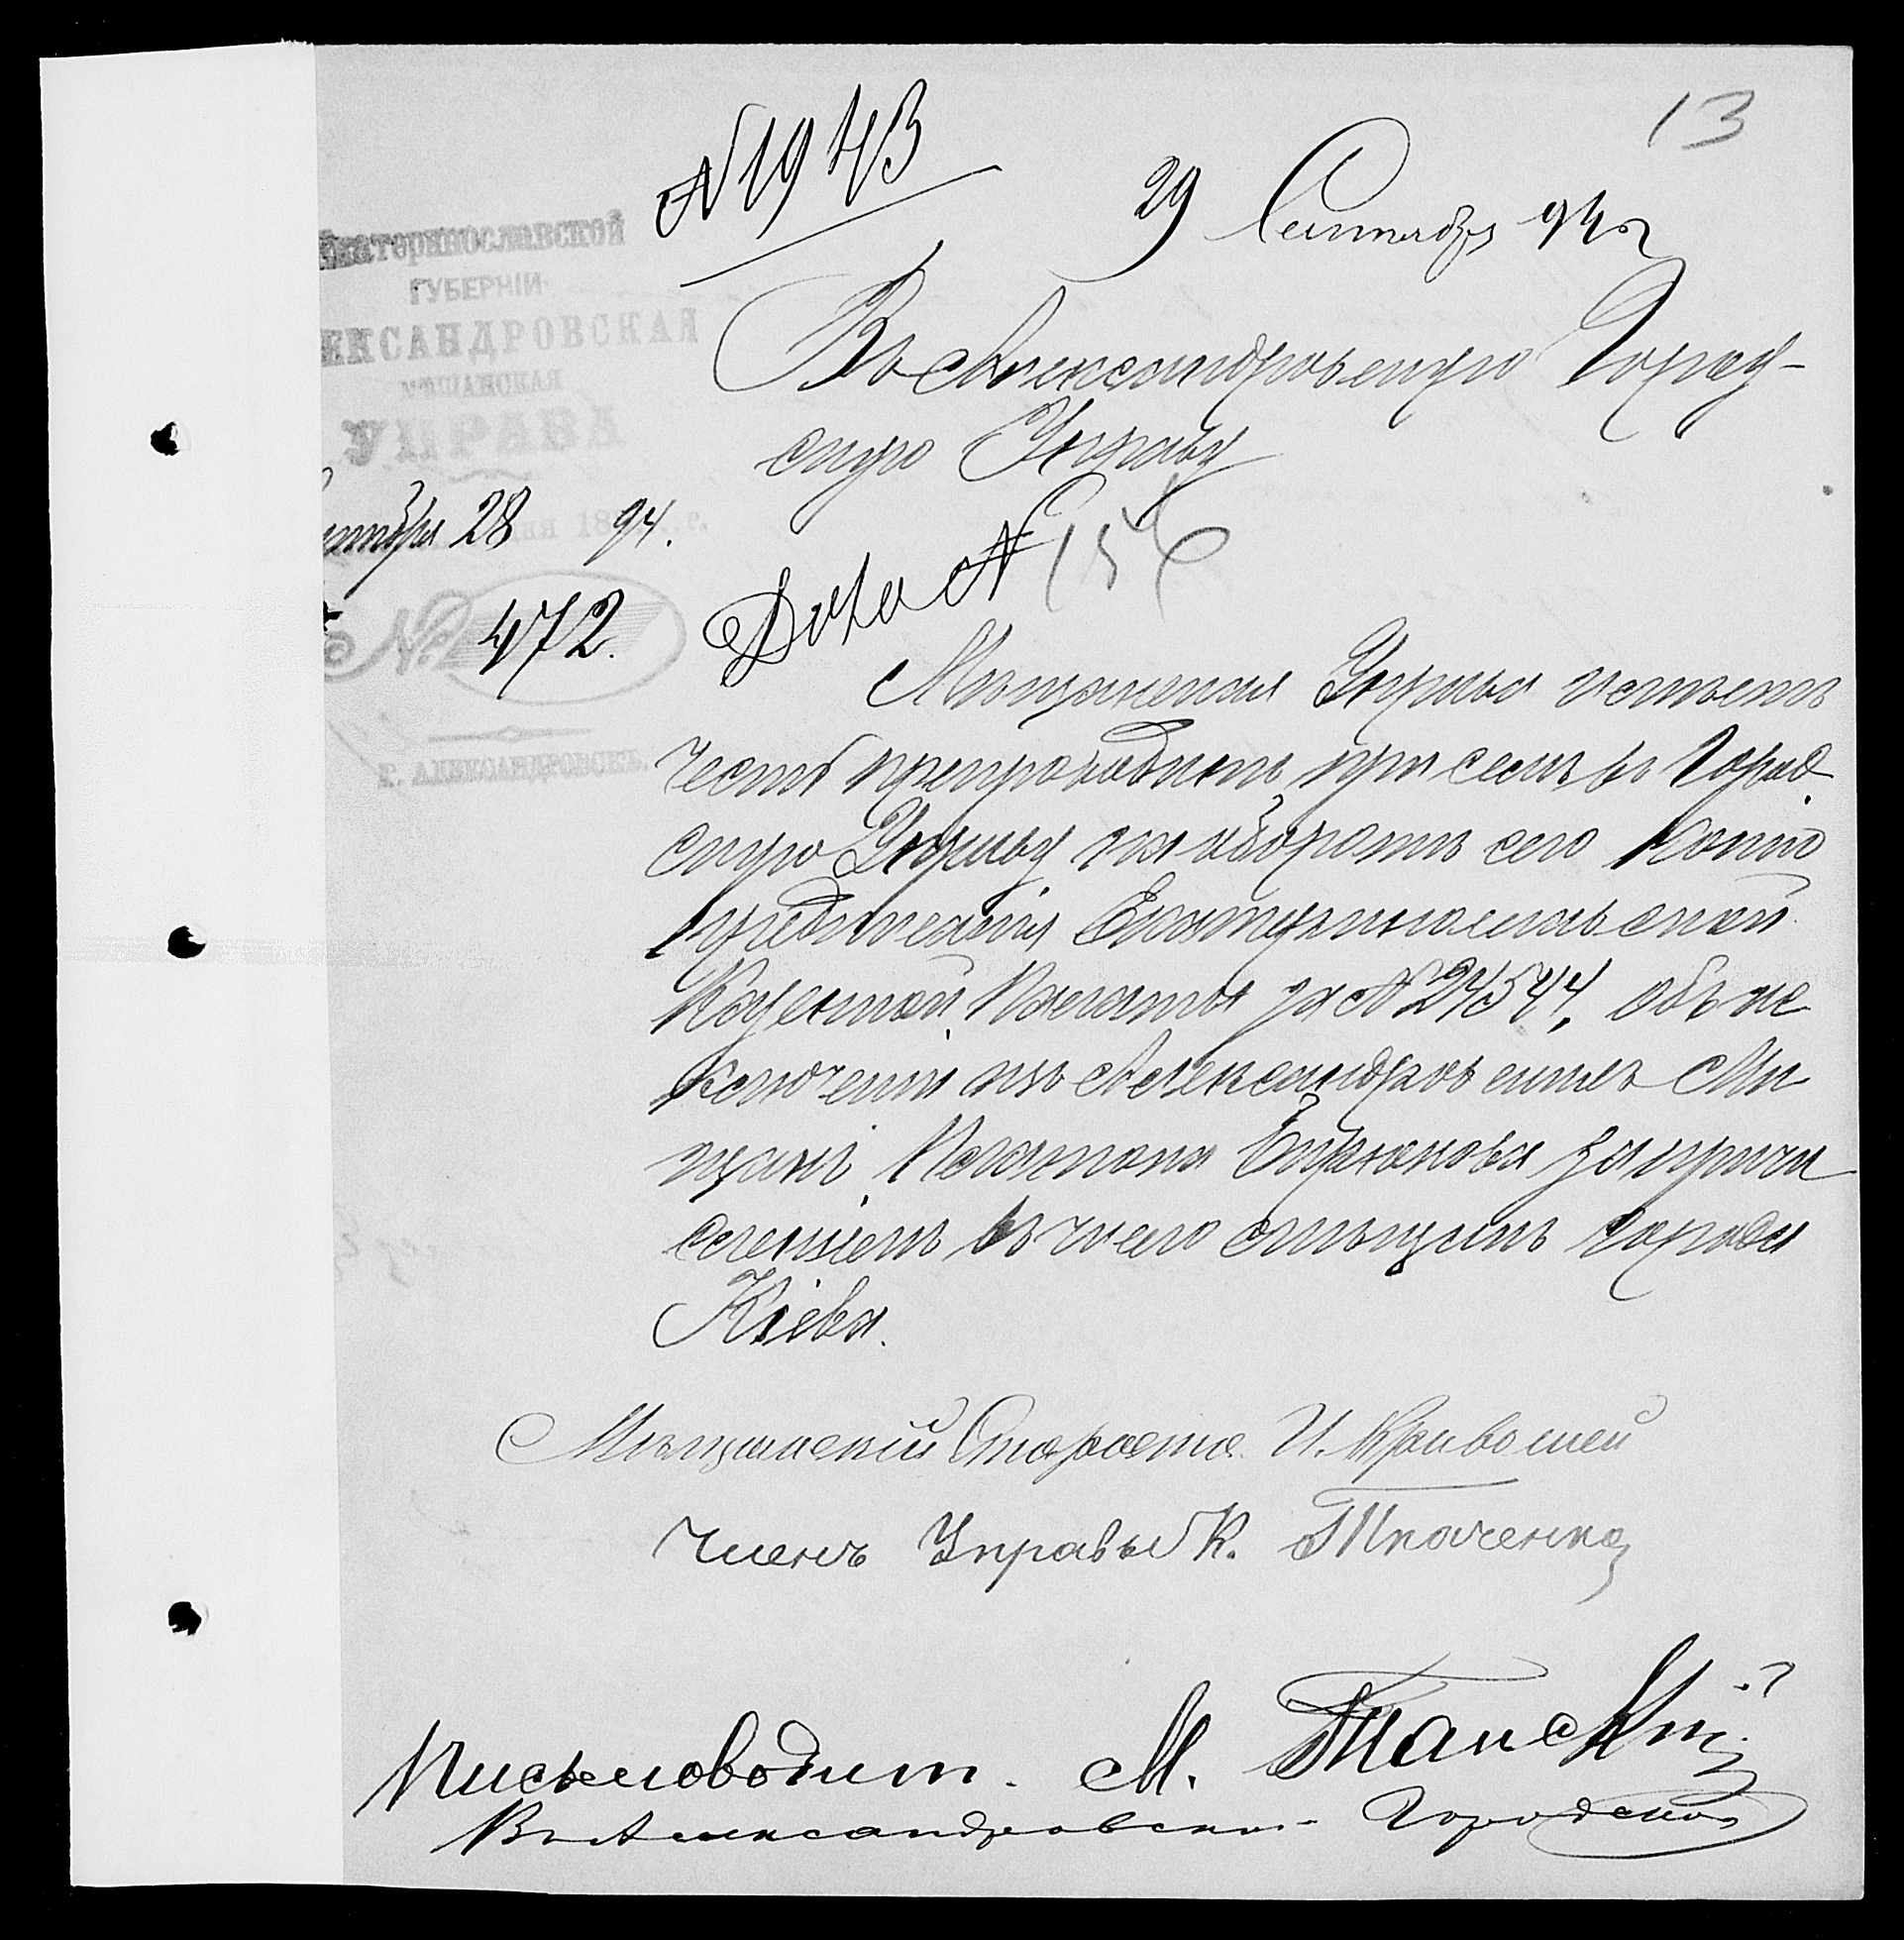 13
№ 1943
29 Сентября 94 г
Екатеринославской
ГУБЕРНІИ
ЕКСАНДРОВСКАЯ
МѢЩАНСКАЯ
УПРАВА
ентября 28 94.
№ 472.
Г. АЛЕКСАНДРОВСКЪ.
Въ Александровскую Город-
скую Управу
Дѣло № 156
Мѣщанская Управа имѣетъ
честь препроводить при семъ въ Город
скую Управу на оборотѣ сего копію
предписанія Екатеринославской
Казенной Палаты за № 24544, объ ис
ключеніи изъ Александровскихъ Мѣ
щанъ Платона Бирюкова за причи
сленіемъ въ число мѣщанъ города
Кіева.
Мѣщанскій Староста И. Кривошей
Членъ Управы К. Ткаченко
Письмоводит. М. Танскій
В Александровскую Городскую